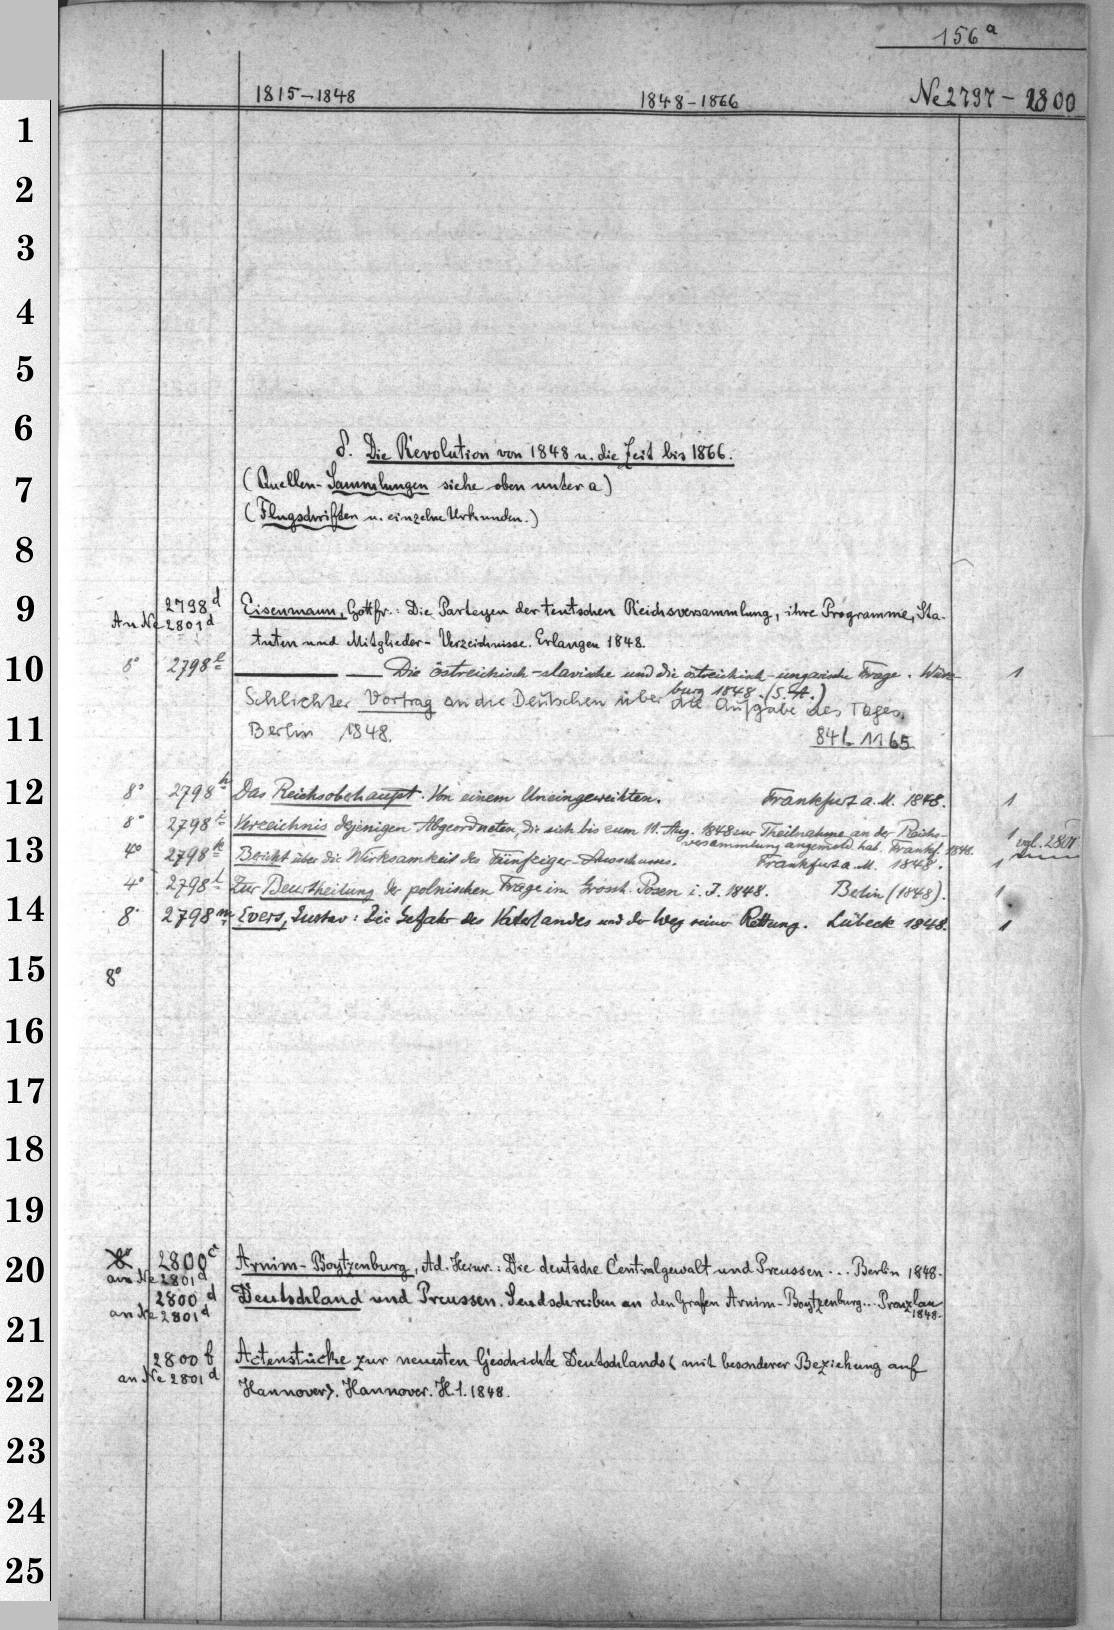 156a
1815-1848 1848-1866 Ne 2797 - 2800
1
2
3
4
5
6
δ. Die Revolution von 1848 u. die Zeit bis 1866.
7 (Quellen-Sammlungen siehe oben unter a)
(Flugschriften u. einzelne Urkunden.)
8
9 2798d Eisenmann, Gottfr.: Die Parteyen der teutschen Reichsversammlung, ihre Programme, Sta-
An Ne 2801d tuten und Mitglieder- Verzeichnisse. Erlangen 1848.
10 8° 2798e — — Die östreichisch-slavische und die östreichisch-ungarische Frage. Würz- 1
burg 1848. (S.A.)
Schlichter Vortrag an die Deutschen über die Aufgabe des Tages.
11 Berlin 1848. 84 L 1165
12 8° 2798h Das Reichsoberhaupt. Von einem Uneingeweihten. Frankfurt a.M. 1848. 1
8° 2798i Verzeichnis derjenigen Abgeordneten, die sich bis zum 11. Aug. 1848 zur Theilnahme an der Reichs- 1 vgl.
versammlung angemeld. hat. Frankf. 1848.
13 4° 2798k Bericht über die Wirksamkeit des Fünfziger-Ausschusses. Frankfurt a.M. 1848. 1
4° 2798l Zur Beurtheilung der polnischen Frage im Grossh. Posen i. J. 1848. Berlin (1848). 1
14 8° 2798m Evers, Gustav: Die Gefahr des Vaterlandes und der Weg seiner Rettung. Lübeck 1848. 1
15 8°
16
17
18
19
20 8° 2800c Arnim-Boytzenburg, Ad. Heinr.: Die deutsche Centralgewalt und Preussen ... Berlin 1848.
an Ne 2801d
2800d Deutschland und Preussen. Sendschreiben an den Grafen Arnim-Boytzenburg... Prenzlau
an Ne 2801d 1848.
21
2800f Actenstücke zur neuesten Geschichte Deutschlands (mit besonderer Beziehung auf
22 an Ne 2801d Hannover). Hannover. H.1. 1848.
23
24
25